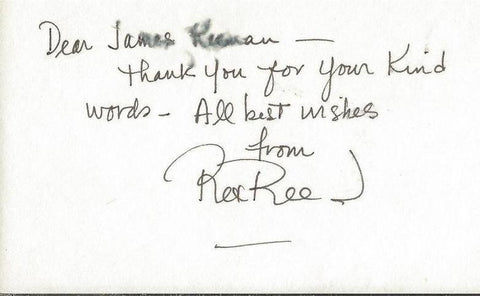 Dear James Keenan —
thank you for your kind
words — All best wishes
from
Rex Reed